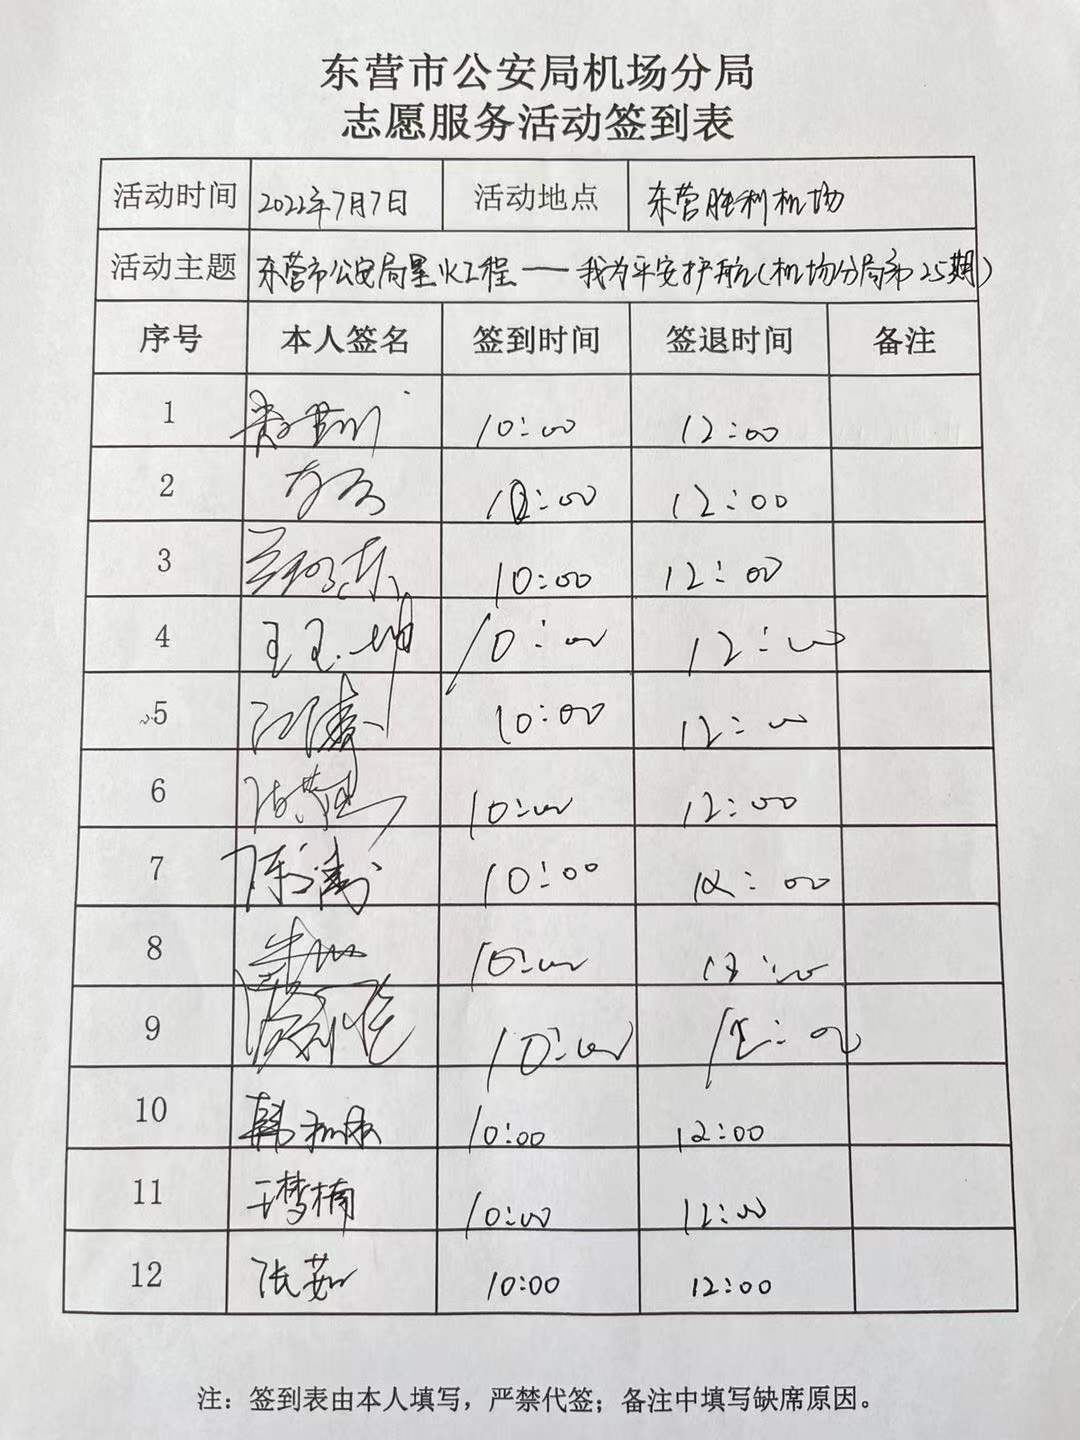 东营市公安局机场分局
志愿服务活动签到表
活动时间 2022年7月7日 活动地点 东营胜利机场
活动主题 东营市公安局星火工程——我为平安护航(机场分局第25期)
序号 本人签名 签到时间 签退时间 备注
1 10:00 12:00
2 10:00 12:00
3 10:00 12:00
4 10:00 12:00
5 10:00 12:00
6 10:00 12:00
7 陈 10:00 12:00
8 10:00 12:00
9 10:00 12:00
10 韩 10:00 12:00
11 王梦楠 10:00 12:00
12 张茹 10:00 12:00
注：签到表由本人填写，严禁代签；备注中填写缺席原因。